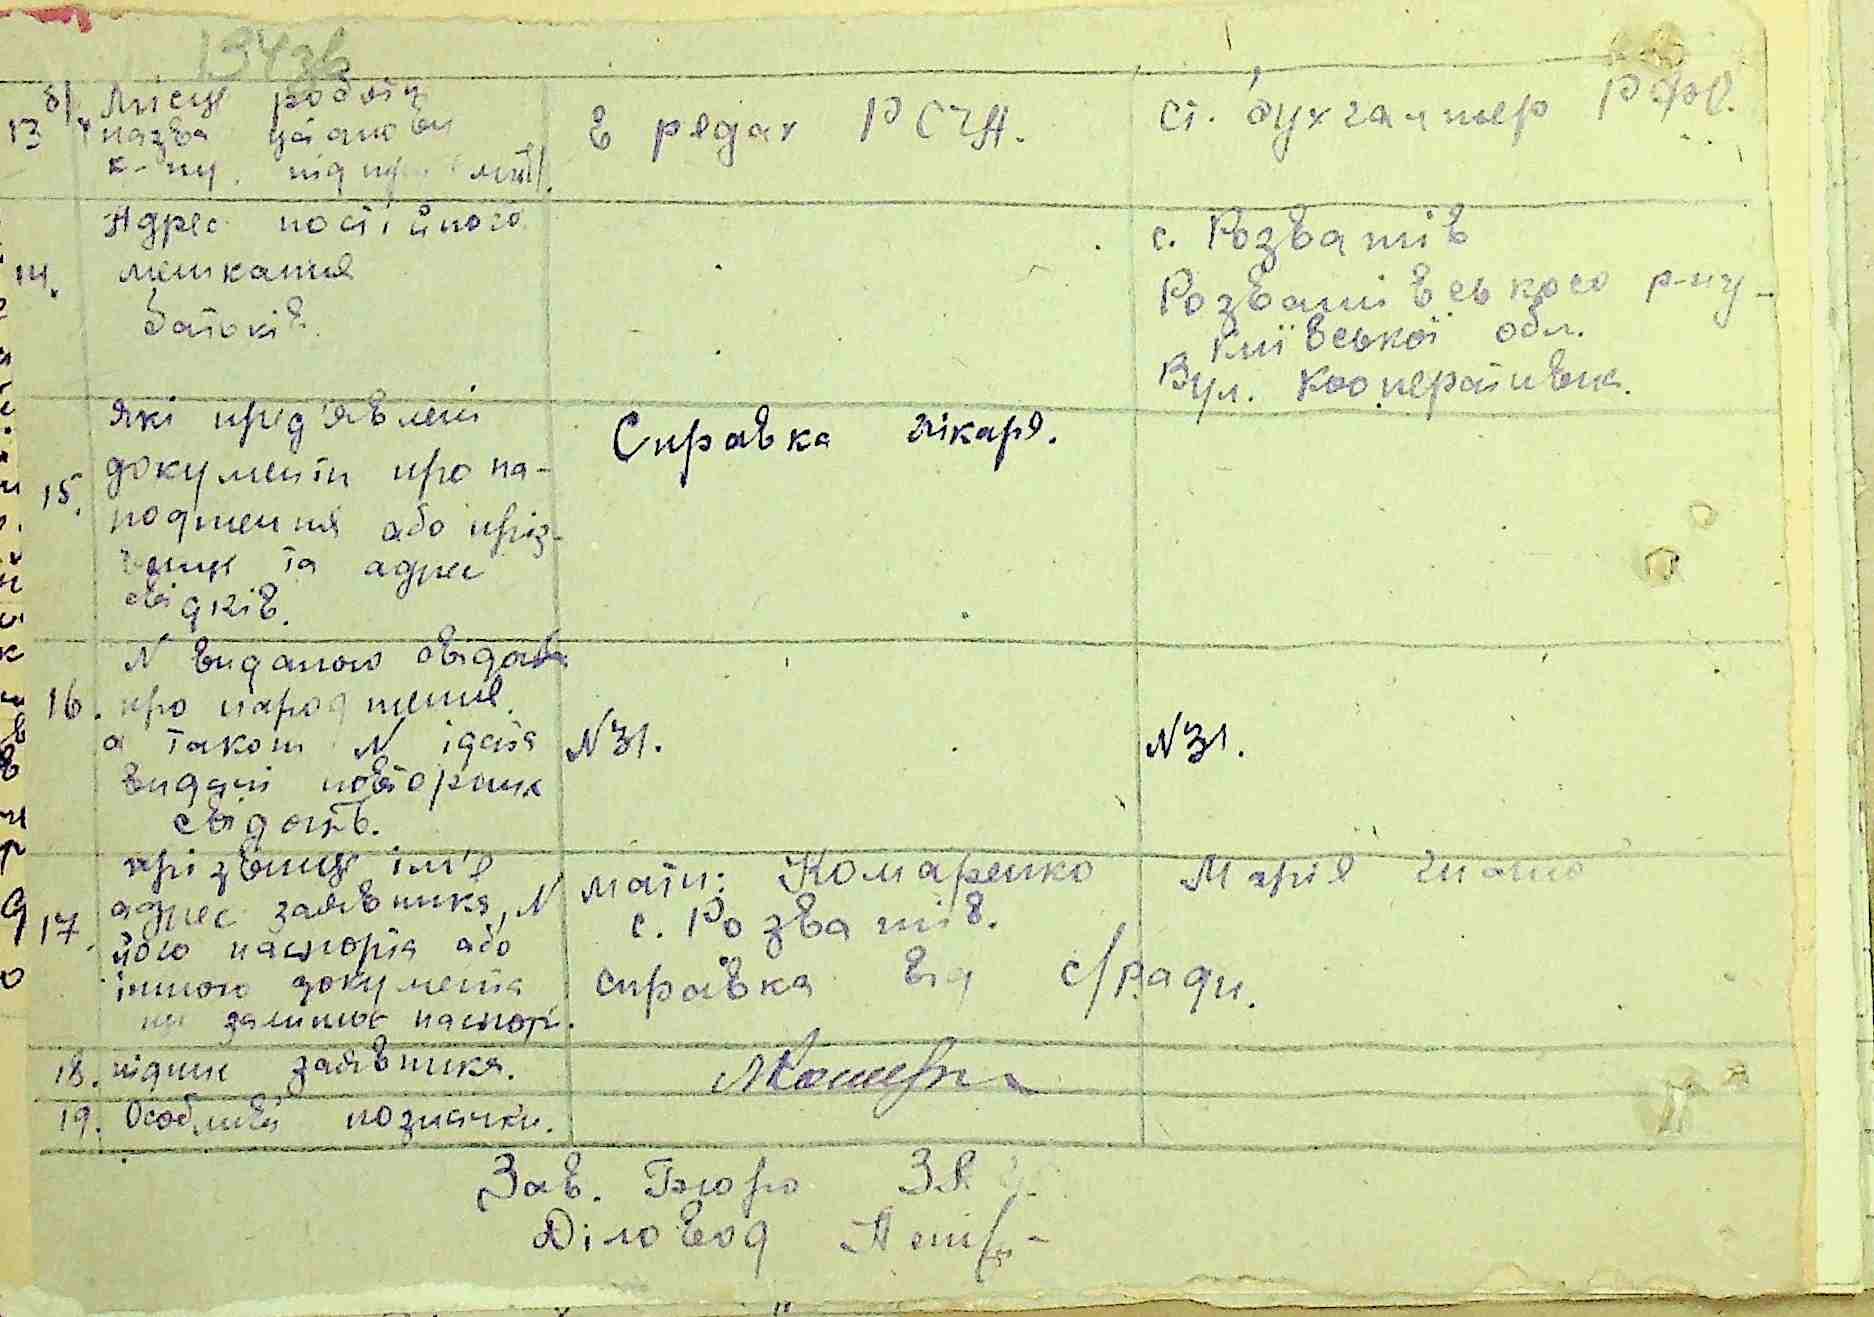 13 б/ Місце роботи
назва установи
в рядах РСЧА.
ст. бухгалтер РФВ.
14. Адрес постійного
мешкання
батьків.
с. Розважів
Розважівського р-ну
Київської обл.
Вул. Кооперативна.
15. Які пред'явлені
документи про на-
родження або пріз-
вище та адрес
свідків.
Справка лікаря.
16. N виданого свідов
про народження.
а також N і дата
видачі повторних
свідоцтв.
N31.
N31.
17. прізвище ім'я
адрес заявника, N
його паспорта або
іншого документа
що замінює паспорт.
мати: Комаренко Марія
с. Розважів.
справка від с/Ради.
18. підпис заявника.
19. Особливі позначки.
Зав. Бюро
Діловод